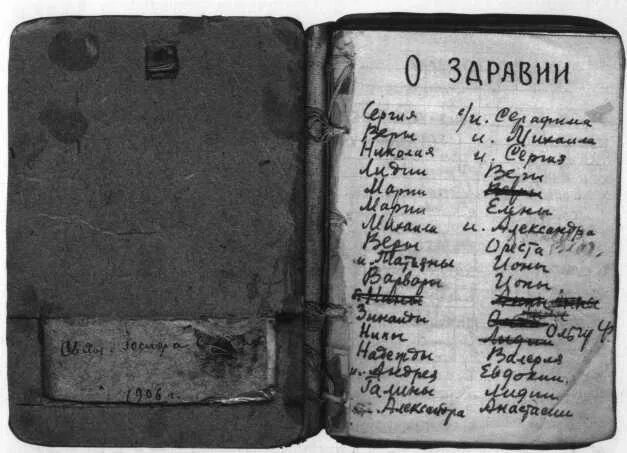 1906 г.
О ЗДРАВИИ
Сергия
Веры
Николая
Лидии
Марии
Марии
Михаила
Веры
и. Матроны
Варвары
Нины
Зинаиды
Нины
Надежды
и. Андрея
Галины
Александра
с/и. Серафима
и. Михаила
и. Сергия
Веры
Веры
Елены
и. Александра
Ореста
Ионы
Ионы
Ольгу Ф.
Лидии
Валерия
Евдокии.
Лидии
Анастасии